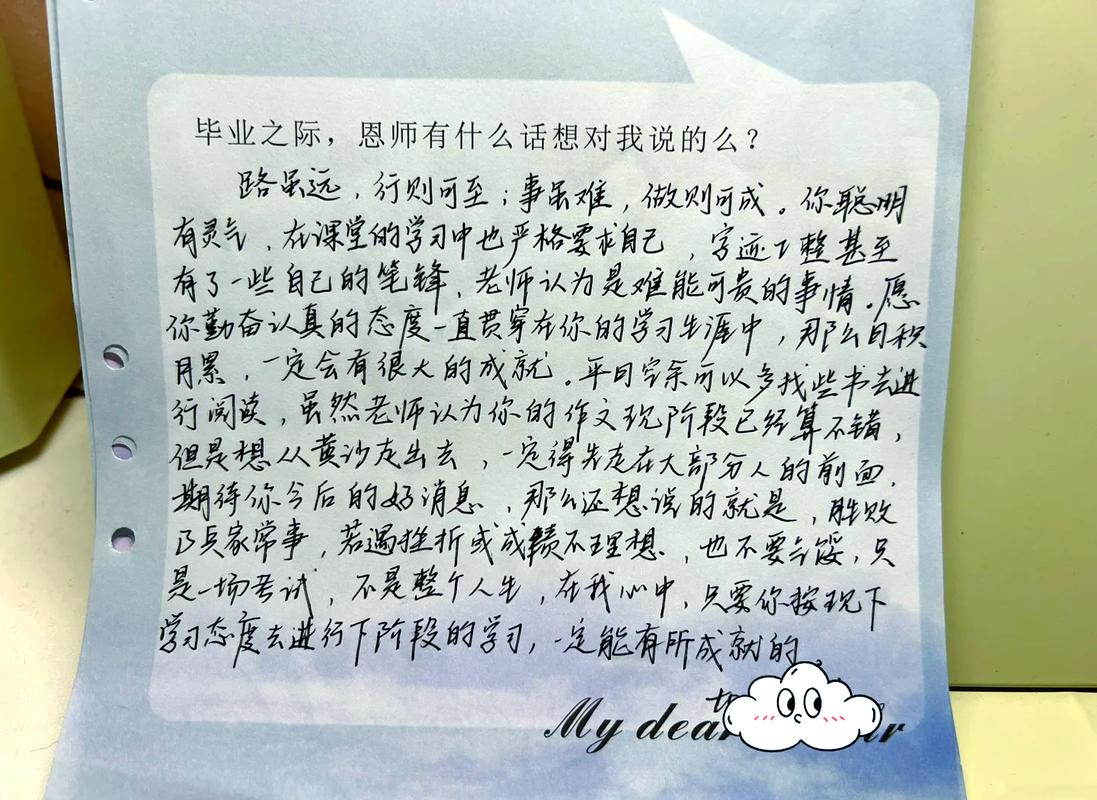 毕业之际，恩师有什么话想对我说的么？
路虽远，行则可至；事虽难，做则可成。你聪明
有灵气，在课堂的学习中也严格要求自己，字迹工整甚至
有了一些自己的笔锋，老师认为是难能可贵的事情。愿
你勤奋认真的态度一直贯穿在你的学习生涯中，那么日积
月累，一定会有很大的成就。平日空余可以多找些书去进
行阅读，虽然老师认为你的作文现阶段已经算不错，
但是想从黄沙走出去，一定得先走在大部分人的前面，
期待你今后的好消息，那么还想说的就是，胜败
乃兵家常事，若遇挫折或成绩不理想，也不要气馁，只
是一场考试，不是整个人生，在我心中，只要你按现下
学习态度去进行下阶段的学习，一定能有所成就的。
My dear